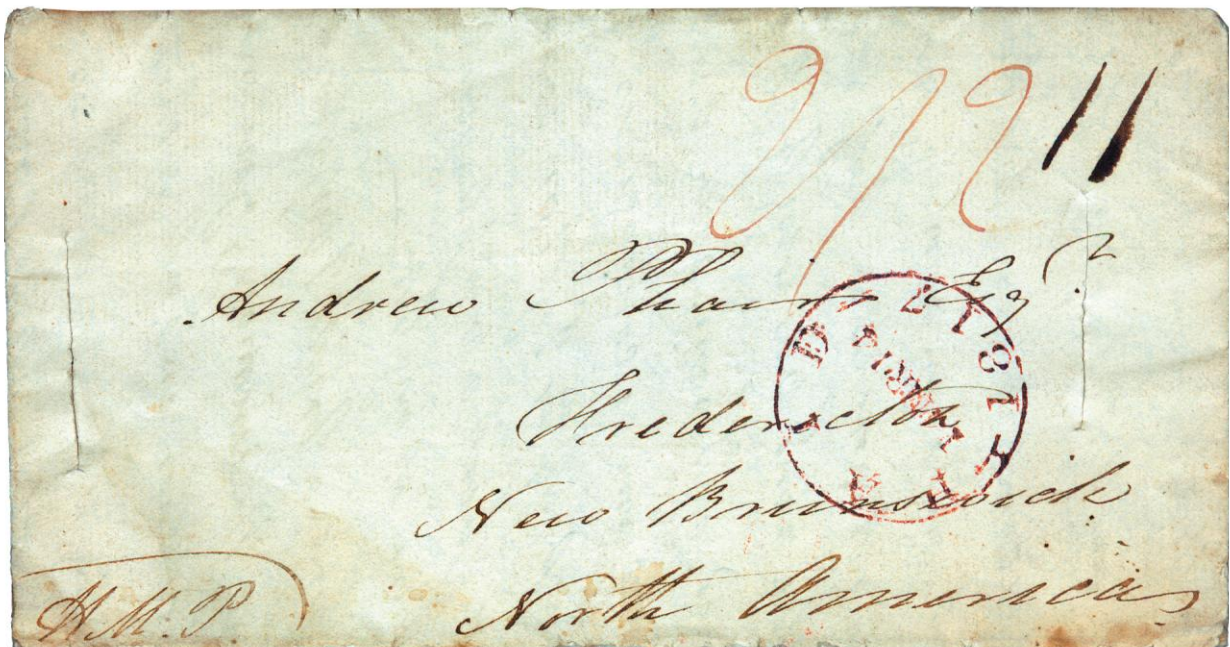 2/2 11
Andrew Phair Esqr
Fredericton
New Brunswick
North America
H.M.P.